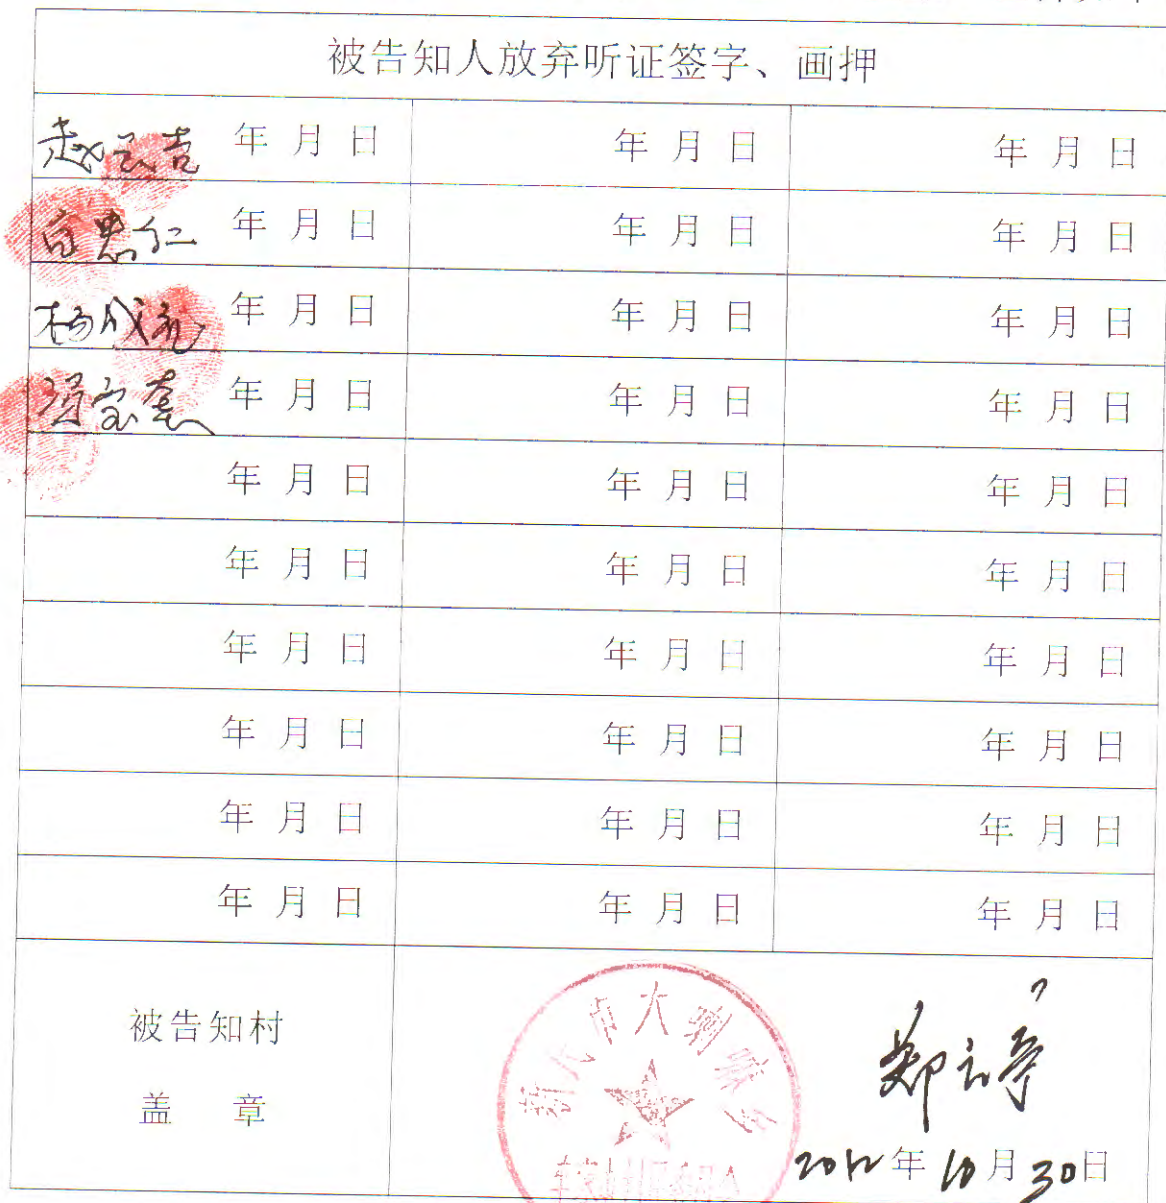 被告知人放弃听证签字、画押
赵云吉 年 月 日 年 月 日 年 月 日
白思仁 年 月 日 年 月 日 年 月 日
杨成 年 月 日 年 月 日 年 月 日
冯宝奎 年 月 日 年 月 日 年 月 日
年 月 日 年 月 日 年 月 日
年 月 日 年 月 日 年 月 日
年 月 日 年 月 日 年 月 日
年 月 日 年 月 日 年 月 日
年 月 日 年 月 日 年 月 日
年 月 日 年 月 日 年 月 日
被告知村
盖 章
市大喇嘛乡
郑云亭
2012年10月30日